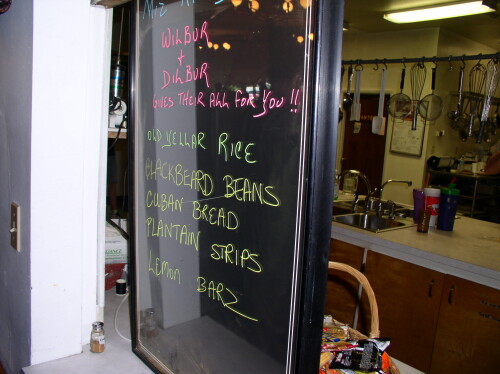 WILBUR
+
DILBUR
GIVES THEIR ALL FOR YOU!!
OLD YELLAR RICE
BLACKBEARD BEANS
CUBAN BREAD
PLANTAIN STRIPS
LEMON BARZ